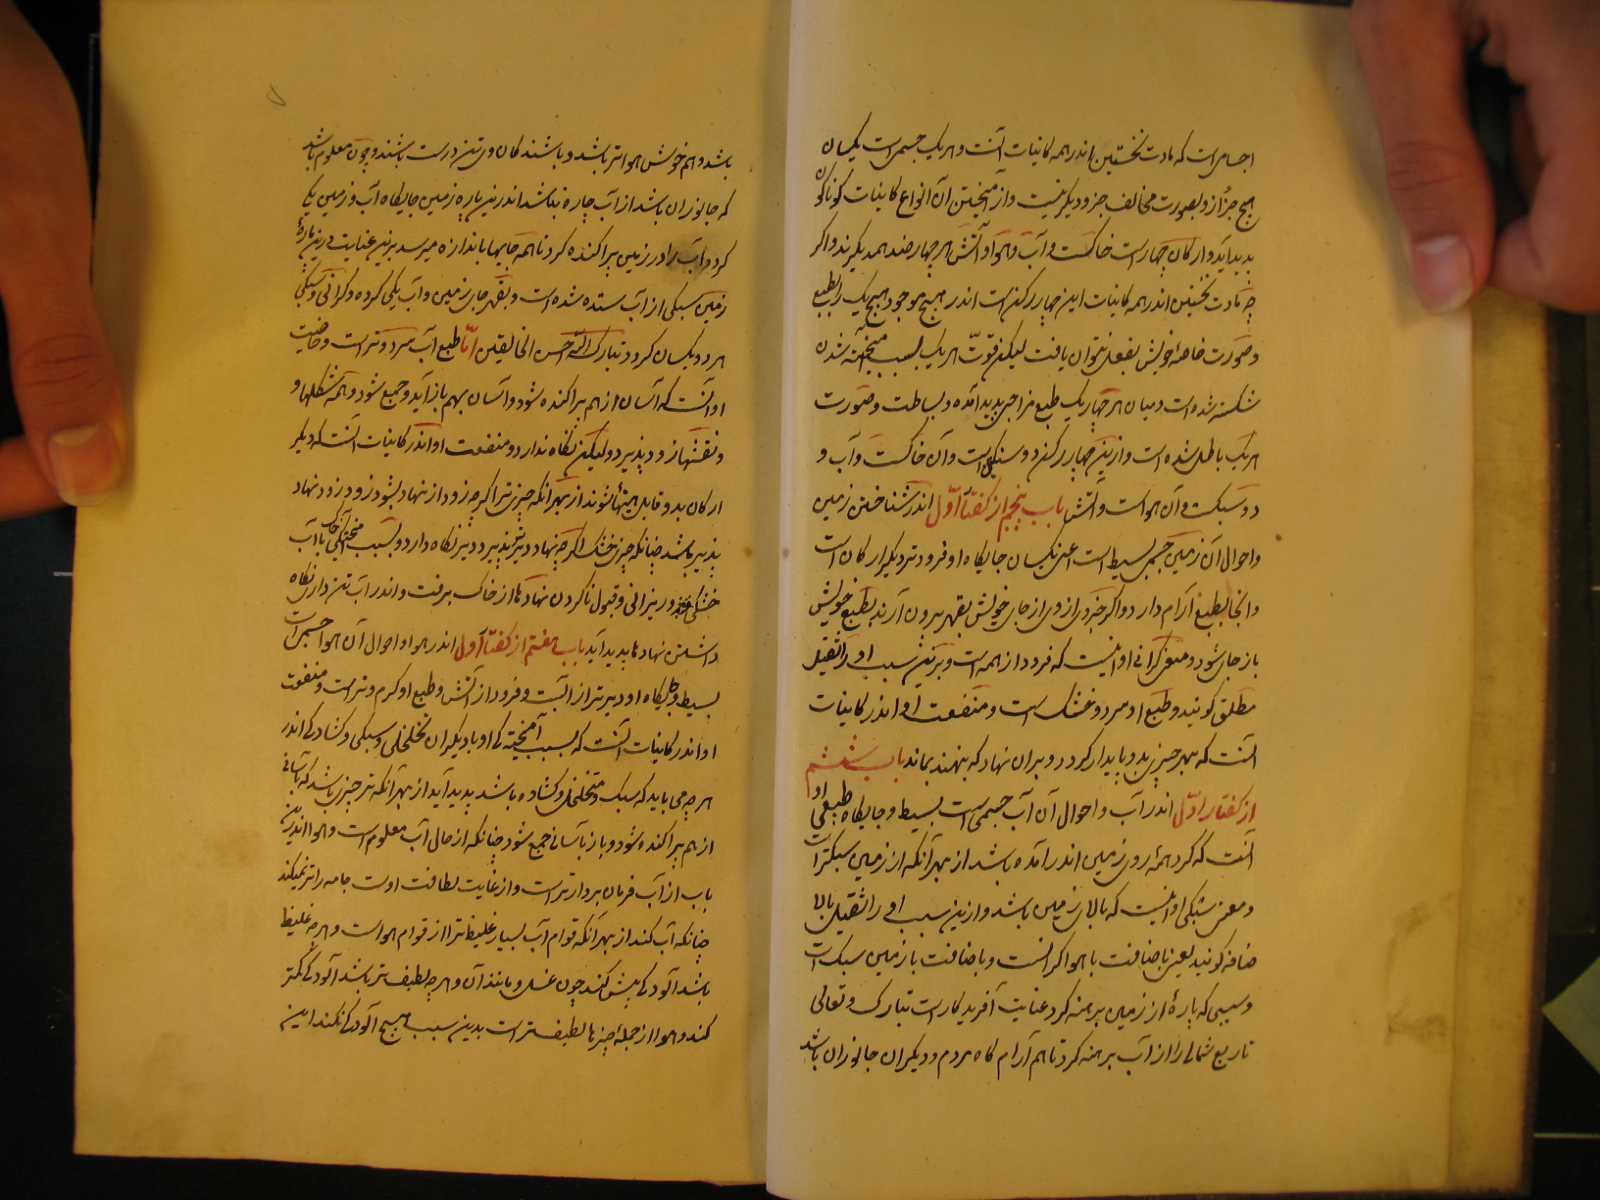 اجسامی است که مادت نخستین اندر همه کاینات آنست و هر یک جسمی است یکسان
هیچ جزو از و بصورت مخالف جزو دیگر نیست و از آمیختن آن انواع کاینات گوناگون
پدید آید و ارکان چهار است خاکست و آب و هوا و آتش هر چهار ضد همدیگرند و اگر
چه مادت نخستین اندر همه کاینات این چهار رکن است اندر هیچ موجود هیچ یک را بطبع
و صورت خاصهٔ خویش بفعل نتوان یافت لیکن قوّت هر یک بسبب آمیخته شدن
شکسته شده است و میان هر چهار یک طبع مزاجی پدید آمده و بساطت و صورت
هر یک باطل شده است و ازین چهار رکن دو سنگی است و آن خاکست و آب و
دو سبک و آن هواست و آتش باب پنجم از گفتار اوّل اندر شناختن زمین
و احوال آن زمین جسمی بسیط است اعنی یکسان جایگاه او فرودتر دیگر ارکان است
و آنجا بطبع آرام دارد و اگر جزوی از وی از جای خویش بقهر بیرون آرند بطبع خویش
باز جای شود و معنی گرانی او اینست که فرود از همه است و بدین سبب او را ثقیل
مطلق گویند و طبع او سرد و خشک است و منفعت او اندر کاینات
آنست که بهر چیزی بدو پایدار گردد و بران نهاد که بنهند بماند باب ششم
از گفتار اوّل اندر آب و احوال آن آب جسمی است بسیط و جایگاه طبیعی او
آنست که گرد همهٔ روی زمین اندر آمده باشد از بهر آنکه از زمین سبکتر است
و معنی سبکی او اینست که بالای زمین باشد و ازین سبب او را ثقیل بالا
ضافه گویند یعنی باضافت با هوا گرانست و باضافت با زمین سبک است
و سببی که پارهٔ از زمین برهنه کرد عنایت آفریدگار است تبارک و تعالی
تا ربع شمالی را از آب برهنه کرد تا هم آرام گاه مردم و دیگران جانوران باشد
باشد و هم خوش هوا تر باشد و باشندگان و تن درست باشند و چون معلوم باشد
که جانوران باشد از آب چاره نباشد اندرین پاره زمین جایگاه آب و زمین یکی
کرد و آب را در زمین پراکنده کرد تا همه جایها باندازه میرسد بدین عنایت درین پارهٔ
زمین سبکی از آب ستده شده است و بقهر جای زمین و آب یکی کرده و گرانی و سبکی
هر دو یکسان کرد و تبارک الله احسن الخالقین امّا طبع آب سرد و تر است و خاصیت
او آنست که آسان از هم پراکنده شود و آسان بهم باز آید و جمع شود و همه شکلها و
و نقشها زود پذیرد و لیکن نگاه ندارد و منفعت او اندر کاینات آنست که دیگر
ارکان بدو قابل هیئها شوند از بهر آنکه چیزی تر اگر چه زود از نهاد بشود زود زود نهاد
پذیر باشد چنانکه چیزی خشک اگر چه نهاد دیر پذیرد دیر نگاه دارد و بسبب آمیختگی خاک با آب
خشکی و ریزانی و قبول ناکردن نهادها از خاک برفت و اندر آب تن داری نگاه
داشتن نهادها پدید آید باب هفتم از گفتار اول اندر هوا و احوال آن هوا جسمی است
بسیط و جایگاه او دیرتر از آبست و فرود از آتش و طبع او گرم و تر است و منفعت
او اندر کاینات آنست که بسبب آمیختگی او با دیگران تخلخلی و سبکی و گشادگی اندر
هر چه می باید که سبک و متخلخل و گشاده باشد پدید آید از بهر آنکه تر چیزی باشد که بآسانی
از هم پراکنده شود و باز بآسانی جمع شود چنانکه از حال آب معلوم است و هوا اندرین
باب از آب فرمان بردارتر است و از غایت لطافت اوست جامه را تر نمیکند
چنانکه آب کند از بهر آنکه قوام آب بسیار غلیظ تر از قوام هواست و هر چه غلیظ
باشد آلودگی بیش کند چون عسل و مانند آن و هر چه لطیف تر باشد آلودگی کمتر
کند و هوا از جملهٔ چیزها لطیف تر است بدین سبب هیچ آلودگی نکند این